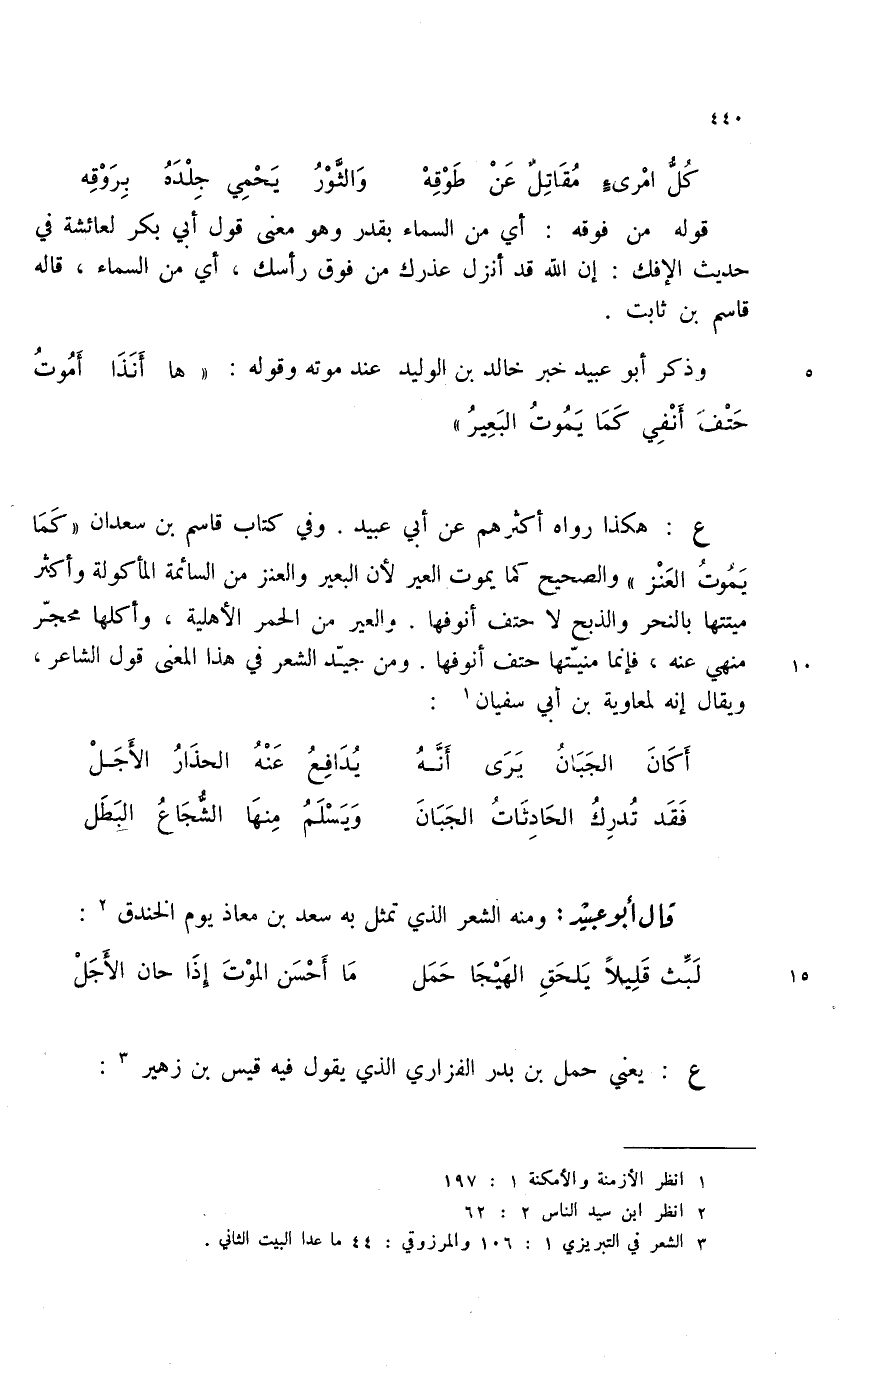 ٤٤٠
كُلُّ امْرِىءٍ مُقَاتِلٌ عَنْ طَوْقِهْ وَالثَّوْرُ يَحْمِي جِلْدَهُ بِرَوْقِهِ
قوله من فوقه : أي من السماء بقدر وهو معنى قول أبي بكر لعائشة في
حديث الإفك : إن الله قد أنزل عذرك من فوق رأسك ، أي من السماء ، قاله
قاسم بن ثابت .
٥ وذكر أبو عبيد خبر خالد بن الوليد عند موته وقوله : « ها أَنَذَا أَمُوتُ
حَتْفَ أَنْفِي كَمَا يَمُوتُ البَعِيرُ »
ع : هكذا رواه أكثرهم عن أبي عبيد . وفي كتاب قاسم بن سعدان « كَمَا
يَمُوتُ العَنْز » والصحيح كما يموت العير لأن البعير والعنز من السائمة المأكولة وأكثر
ميتتها بالنحر والذبح لا حتف أنوفها . والعير من الحمر الأهلية ، وأكلها محجّر
١٠ منهي عنه ، فإنما منيتّها حتف أنوفها . ومن جيّد الشعر في هذا المعنى قول الشاعر ،
ويقال إنه لمعاوية بن أبي سفيان ١ :
أكَانَ الجَبَانُ يَرَى أنَّهُ يُدَافِعُ عَنْهُ الحذَارُ الأَجَلْ
فَقَد تُدرِكُ الحَادِثَاتُ الجَبَانَ وَيَسْلَمُ مِنهَا الشُّجَاعُ البَطَل
قال أبو عبيد : ومنه الشعر الذي تمثل به سعد بن معاذ يوم الخندق ٢ :
١٥ لَبِّث قَلِيلاً يَلحَقِ الهَيْجَا حَمَل مَا أَحْسَن الموْتَ إِذَا حان الأَجَلْ
ع : يعني حمل بن بدر الفزاري الذي يقول فيه قيس بن زهير ٣ :
١ انظر الأزمنة والأمكنة ١ : ١٩٧
٢ انظر ابن سيد الناس ٢ : ٦٢
٣ الشعر في التبريزي ١ : ١٠٦ والمرزوقي : ٤٤ ما عدا البيت الثاني .